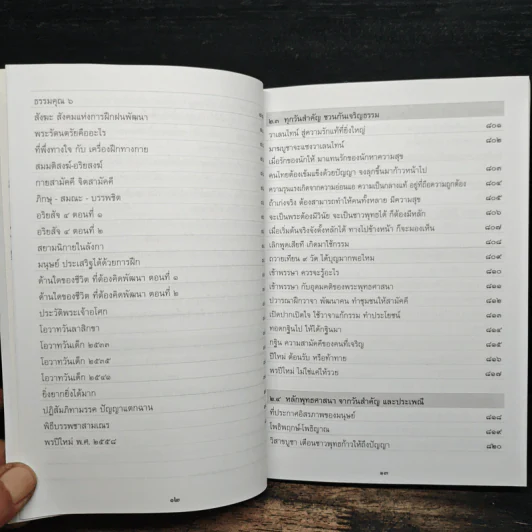 ธรรมคุณ ๖
สังฆะ สังคมแห่งการฝึกฝนพัฒนา
พระรัตนตรัยคืออะไร
ที่พึ่งทางใจ กับ เครื่องฝึกทางกาย
สมมติสงฆ์-อริยสงฆ์
กายสามัคคี จิตสามัคคี
ภิกษุ - สมณะ - บรรพชิต
อริยสัจ ๔ ตอนที่ ๑
อริยสัจ ๔ ตอนที่ ๒
สยามนิกายในลังกา
มนุษย์ ประเสริฐได้ด้วยการฝึก
ด้านใดของชีวิต ที่ต้องคิดพัฒนา ตอนที่ ๑
ด้านใดของชีวิต ที่ต้องคิดพัฒนา ตอนที่ ๒
ประวัติพระเจ้าอโศก
โอวาทวันลาสิกขา
โอวาทวันเด็ก ๒๕๓๓
โอวาทวันเด็ก ๒๕๓๕
โอวาทวันเด็ก ๒๕๔๖
ยิ่งยากยิ่งได้มาก
ปฏิสัมภิทามรรค ปัญญาแตกฉาน
พิธีบรรพชาสามเณร
พรปีใหม่ พ.ศ. ๒๕๕๘
๑๒
๒.๓ ทุกวันสำคัญ ชวนกันเจริญธรรม
วาเลนไทน์ สู่ความรักแท้ที่ยิ่งใหญ่ ๘๐๑
มาฆบูชาจะแซงวาเลนไทน์ ๘๐๒
เมื่อรักของนักให้ มาแทนรักของนักหาความสุข
คนไทยต้องเข้มแข็งด้วยปัญญา จงลุกขึ้นมาก้าวหน้าไป ๘๐๓
ความรุนแรงเกิดจากความอ่อนแอ ความเป็นกลางแท้ อยู่ที่ถือความถูกต้อง ๘๐๔
ถ้าเก่งจริง ต้องสามารถทำให้คนทั้งหลาย มีความสุข ๘๐๕
จะเป็นพระต้องมีวินัย จะเป็นชาวพุทธได้ ก็ต้องมีหลัก ๘๐๖
เมื่อเริ่มต้นจริงจังตั้งหลักได้ ทางไปข้างหน้า ก็จะมองเห็น ๘๐๗
เลิกพูดเสียที เกิดมาใช้กรรม ๘๐๘
ถวายเทียน ๙ วัด ได้บุญมากพอไหม ๘๐๙
เข้าพรรษา ควรจะรู้อะไร ๘๑๐
เข้าพรรษา กับอุดมคติของพระพุทธศาสนา ๘๑๑
ปวารณาฝึกวาจา พัฒนาคน ทำชุมชนให้สามัคคี ๘๑๒
เปิดปากเปิดใจ ใช้วาจาแก้กรรม ทำประโยชน์ ๘๑๓
ทอดกฐินไป ให้ได้กฐินมา ๘๑๔
กฐิน ความสามัคคีของคนที่เจริญ ๘๑๕
ปีใหม่ ต้อนรับ หรือท้าทาย ๘๑๖
พรปีใหม่ ไม่ใช่แค่ให้รวย ๘๑๗
๒.๔ หลักพุทธศาสนา จากวันสำคัญ และประเพณี
ที่ประกาศอิสรภาพของมนุษย์ ๘๑๘
โพธิพฤกษ์-โพธิญาณ ๘๑๙
วิสาขบูชา เตือนชาวพุทธก้าวให้ถึงปัญญา ๘๒๐
๑๓